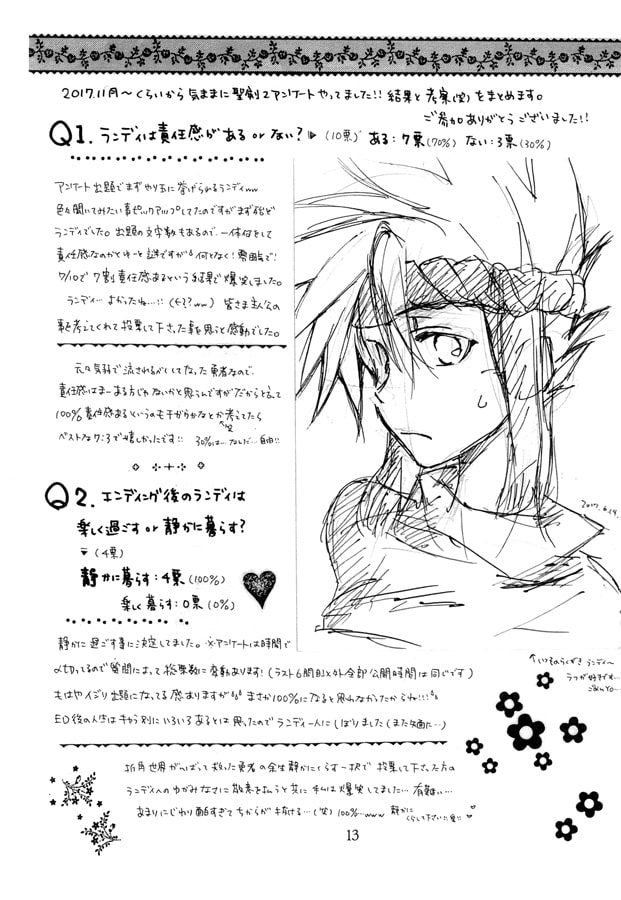 2017.11月〜くらいから気ままに聖剣2アンケートやってました!! 結果と考察(笑)をまとめます。
ご参加ありがとうございました!!
Q1. ランディは責任感があるorない? (10票) ある:7票(70%) ない:3票(30%)
アンケート出題でまずやり玉に挙げられるランディww
色々聞いてみたい事ピックアップしてたのですがまず殆ど
ランディでした。出題の文字数もあるので、一体何をして
責任感なのかとゆーと謎ですが 何となく!雰囲気で!
7/10で7割責任感あるという結果で爆笑しました。
ランディ…よかったね…!! 皆さま主人公の
事を考えてくれて投票して下さった事を思うと感動でした。
元々気弱で流されるがしてなった勇者なので、
責任感はまーある方じゃないかと思うんですがだからと言って
100%責任感あるというのも 考えてたら
ベストな7:3で嬉しかったです!! 30%は…なしだ…自由!!
Q2. エンディング後のランディは
楽しく過ごすor静かに暮らす?
(4票)
静かに暮らす:4票(100%)
楽しく暮らす:0票(0%)
2017.6.14.
静かに過ごす事に決定してました。※アンケートは時間で
〆切ってるので質問によって投票数に変動あります!(ラスト6問目以外全部公開時間は同じです)
もはやイジり出題になってる感ありますが まさか100%になると思わなかったからね!!!
ED後の人生はキャラ別にいろいろあるとは思ったのでランディ一人にしぼりました(また
↑いつものらくがきランディ〜
うつが好きです…
世界がんばって救った勇者の余生静かにくらす一択で投票して下さった方の
ランディへのゆがみなさに敬意を払うと共に私は爆笑してました…有難い…
あまりにじわり面白すぎてちからが抜ける…(笑) 100%…www 静かに
くらして下さい
13